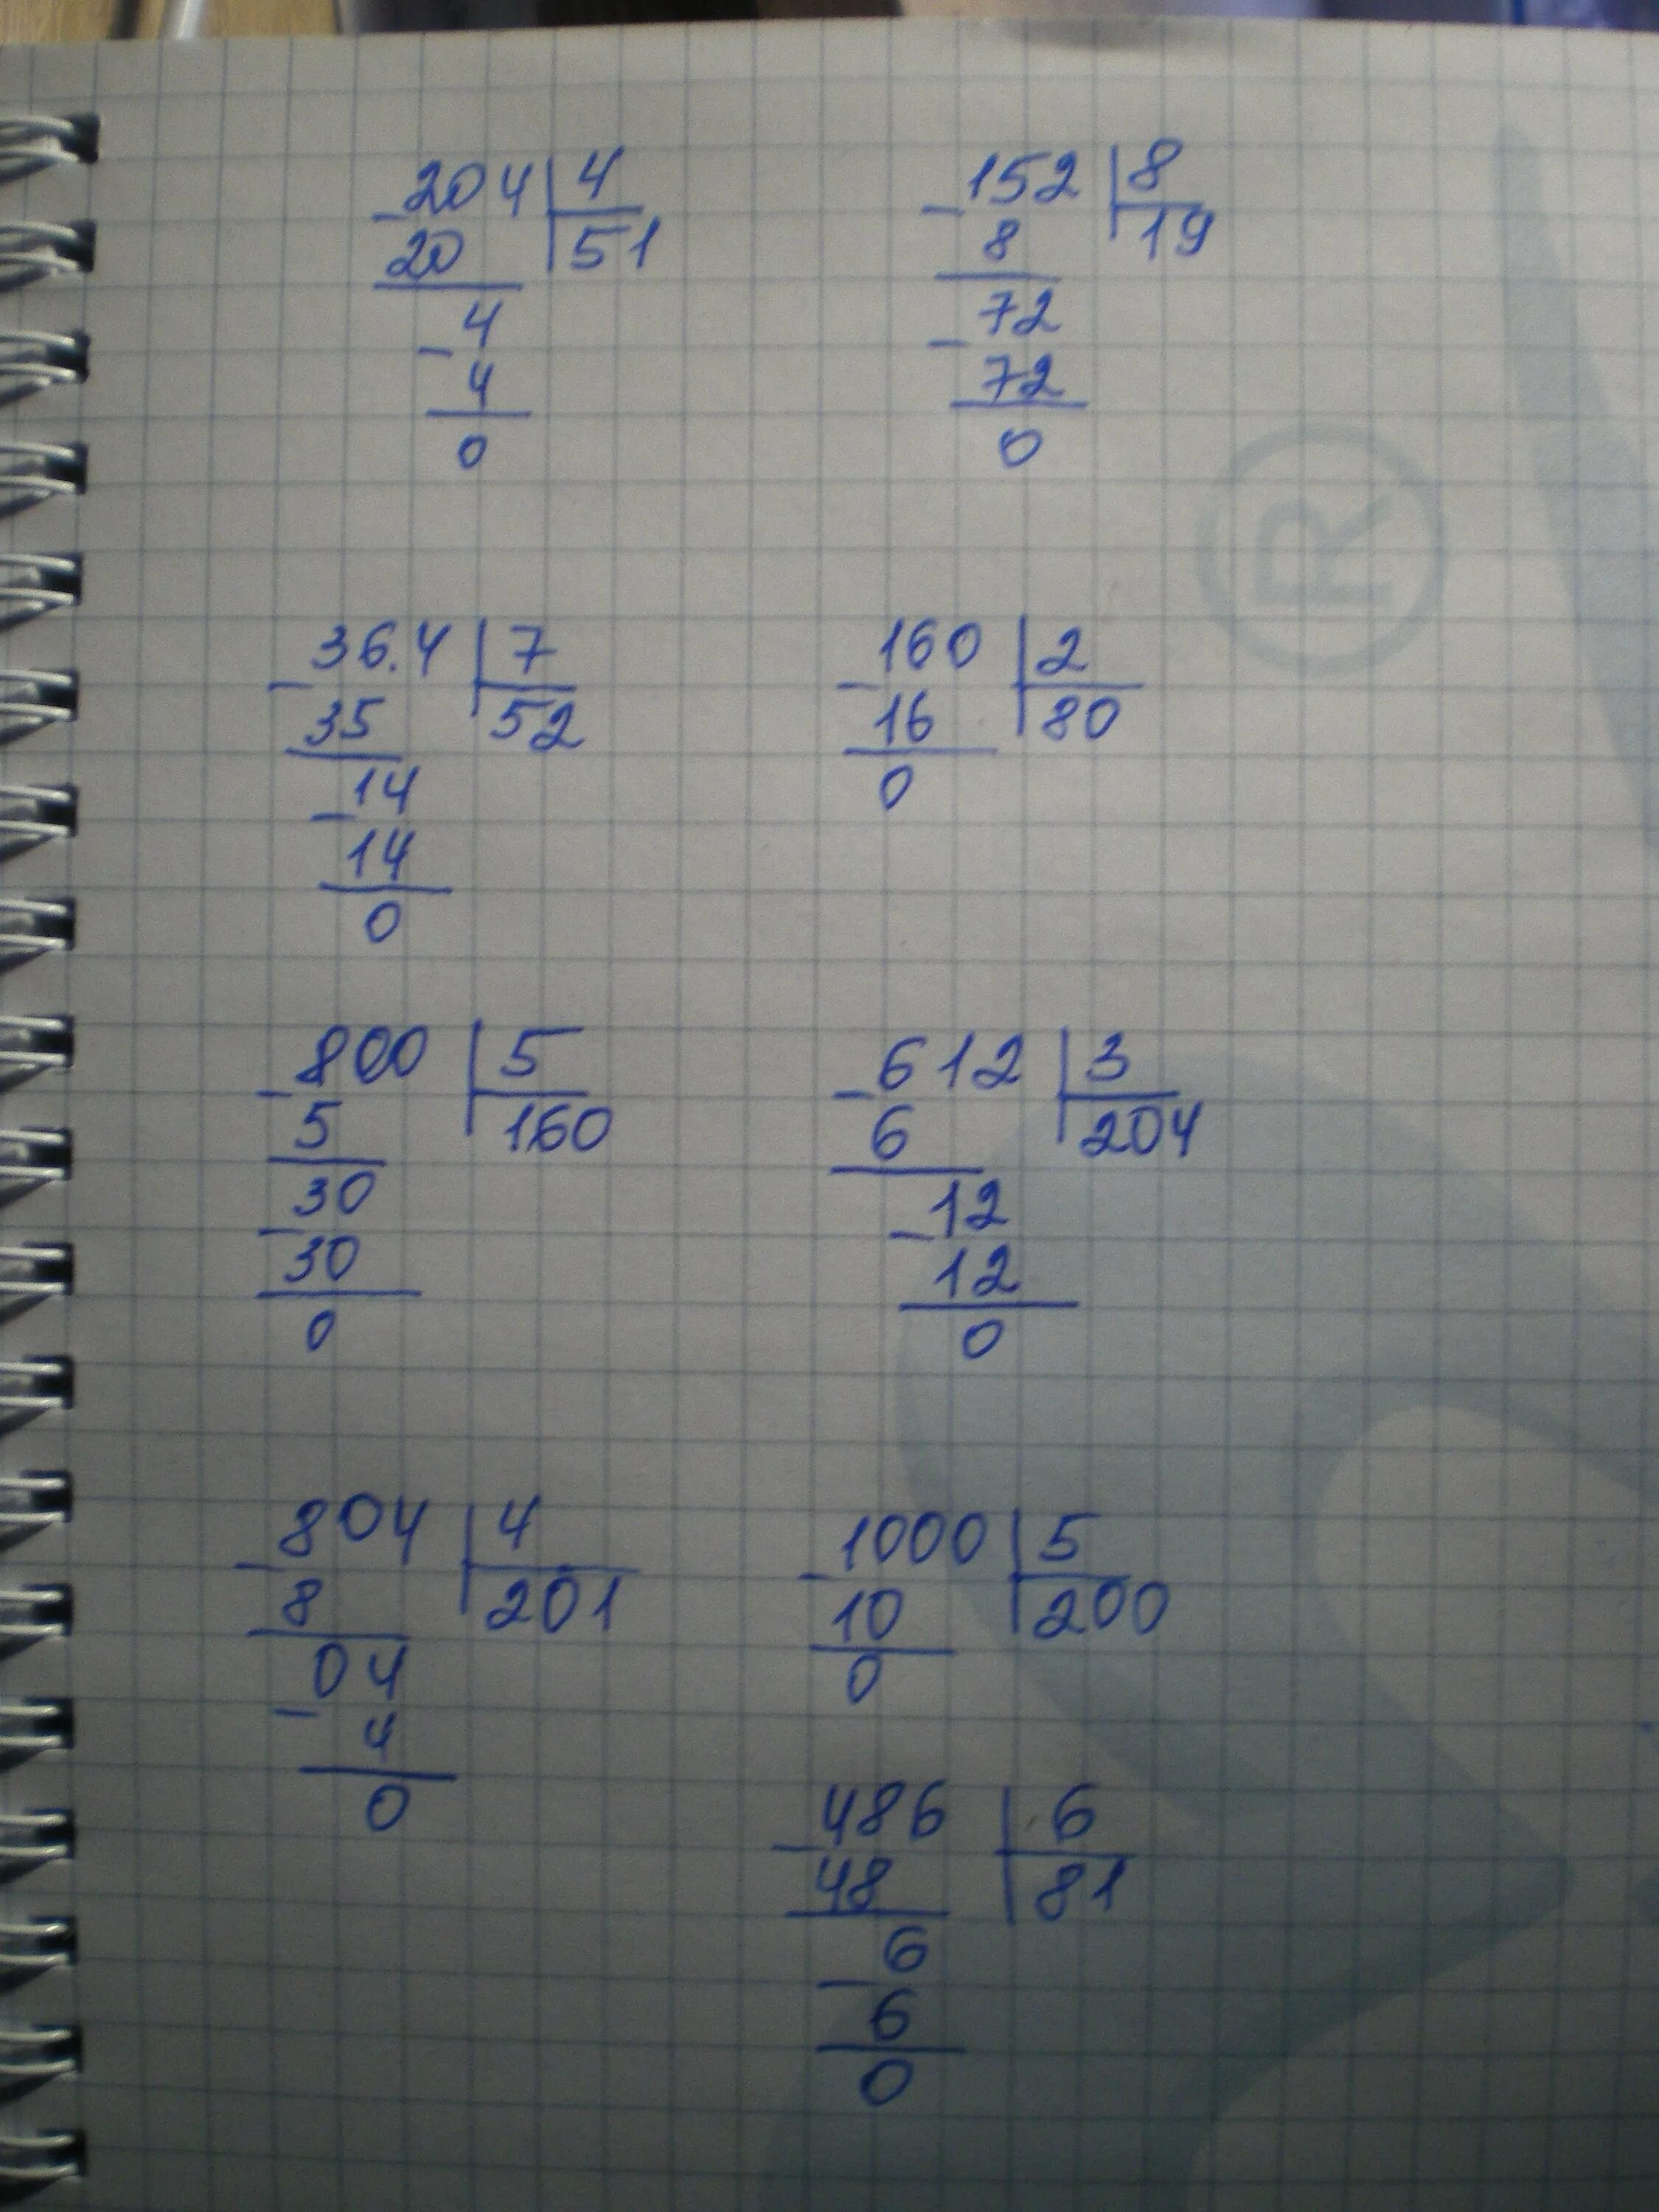 204 | 4
- 20 | 51
4
- 4
0
152 | 8
- 8 | 19
72
- 72
0
36.4 | 7
- 35 | 52
14
- 14
0
160 | 2
- 16 | 80
0
800 | 5
- 5 | 160
30
- 30
0
612 | 3
- 6 | 204
12
- 12
0
804 | 4
- 8 | 201
04
- 4
0
1000 | 5
- 10 | 200
0
486 | 6
- 48 | 81
6
- 6
0
®